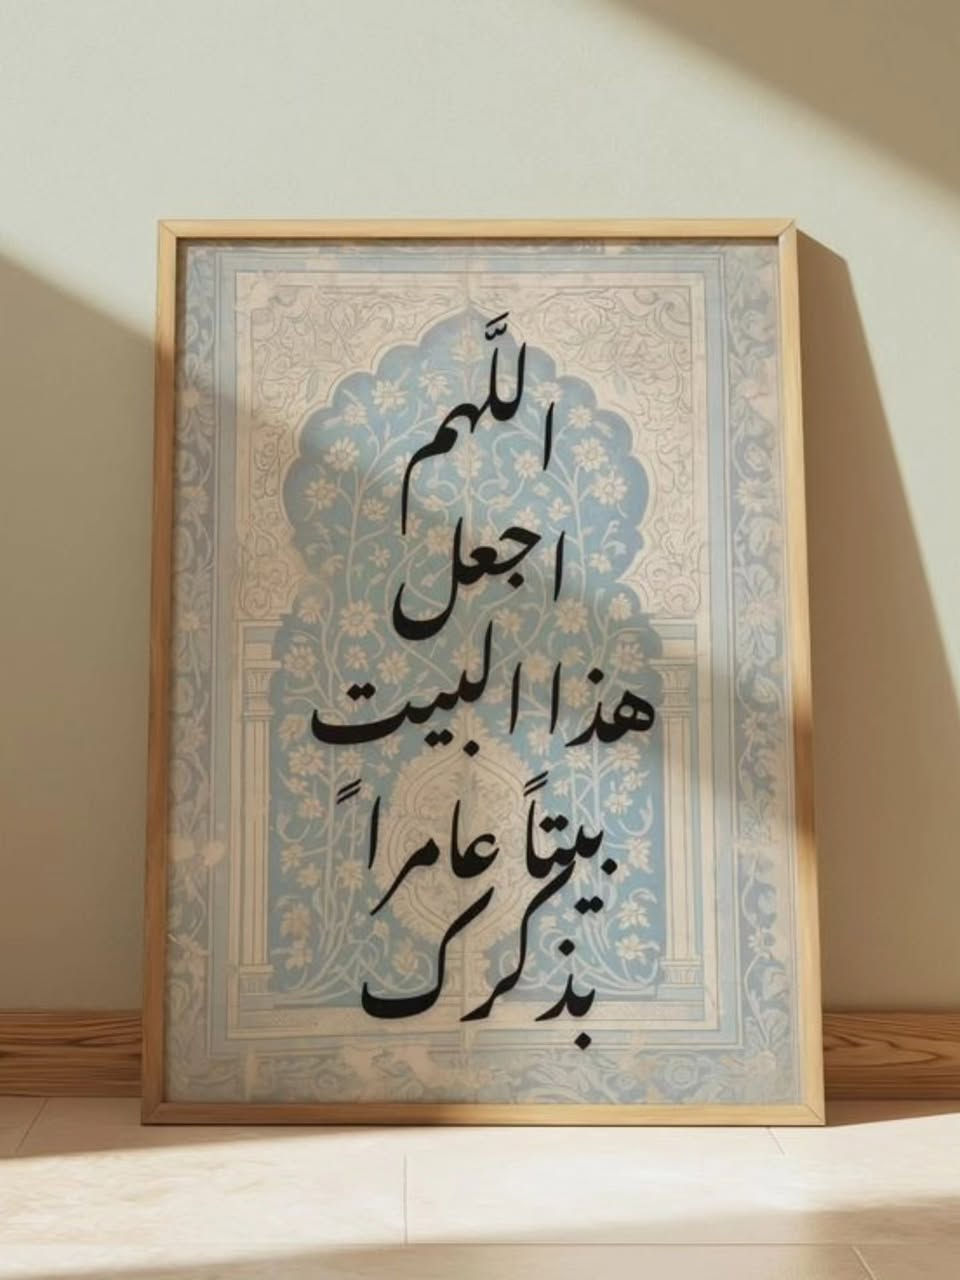 اللّهم
اجعل
هذا البيت
بيتاً عامراً
بذكرك